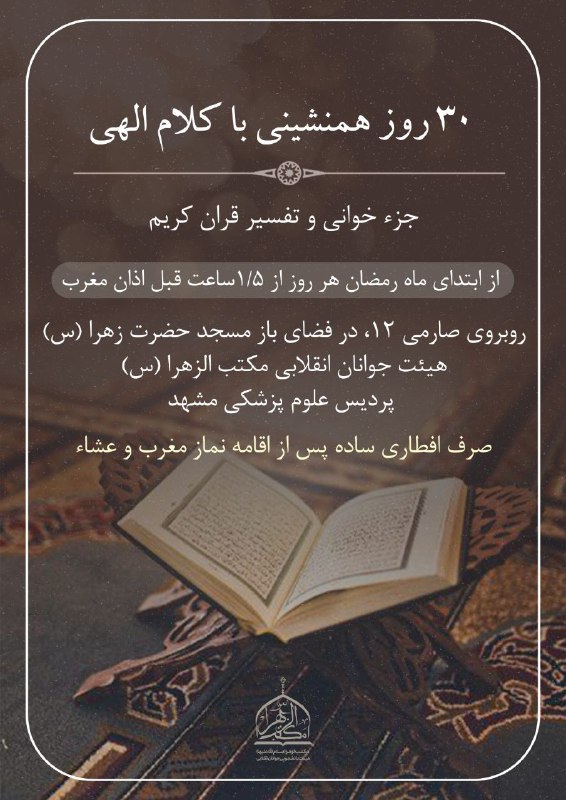 ۳۰ روز همنشینی با کلام الهی
جزء خوانی و تفسیر قران کریم
از ابتدای ماه رمضان هر روز از ۱/۵ساعت قبل اذان مغرب
روبروی صارمی ۱۲، در فضای باز مسجد حضرت زهرا (س)
هیئت جوانان انقلابی مکتب الزهرا (س)
پردیس علوم پزشکی مشهد
صرف افطاری ساده پس از اقامه نماز مغرب و عشاء